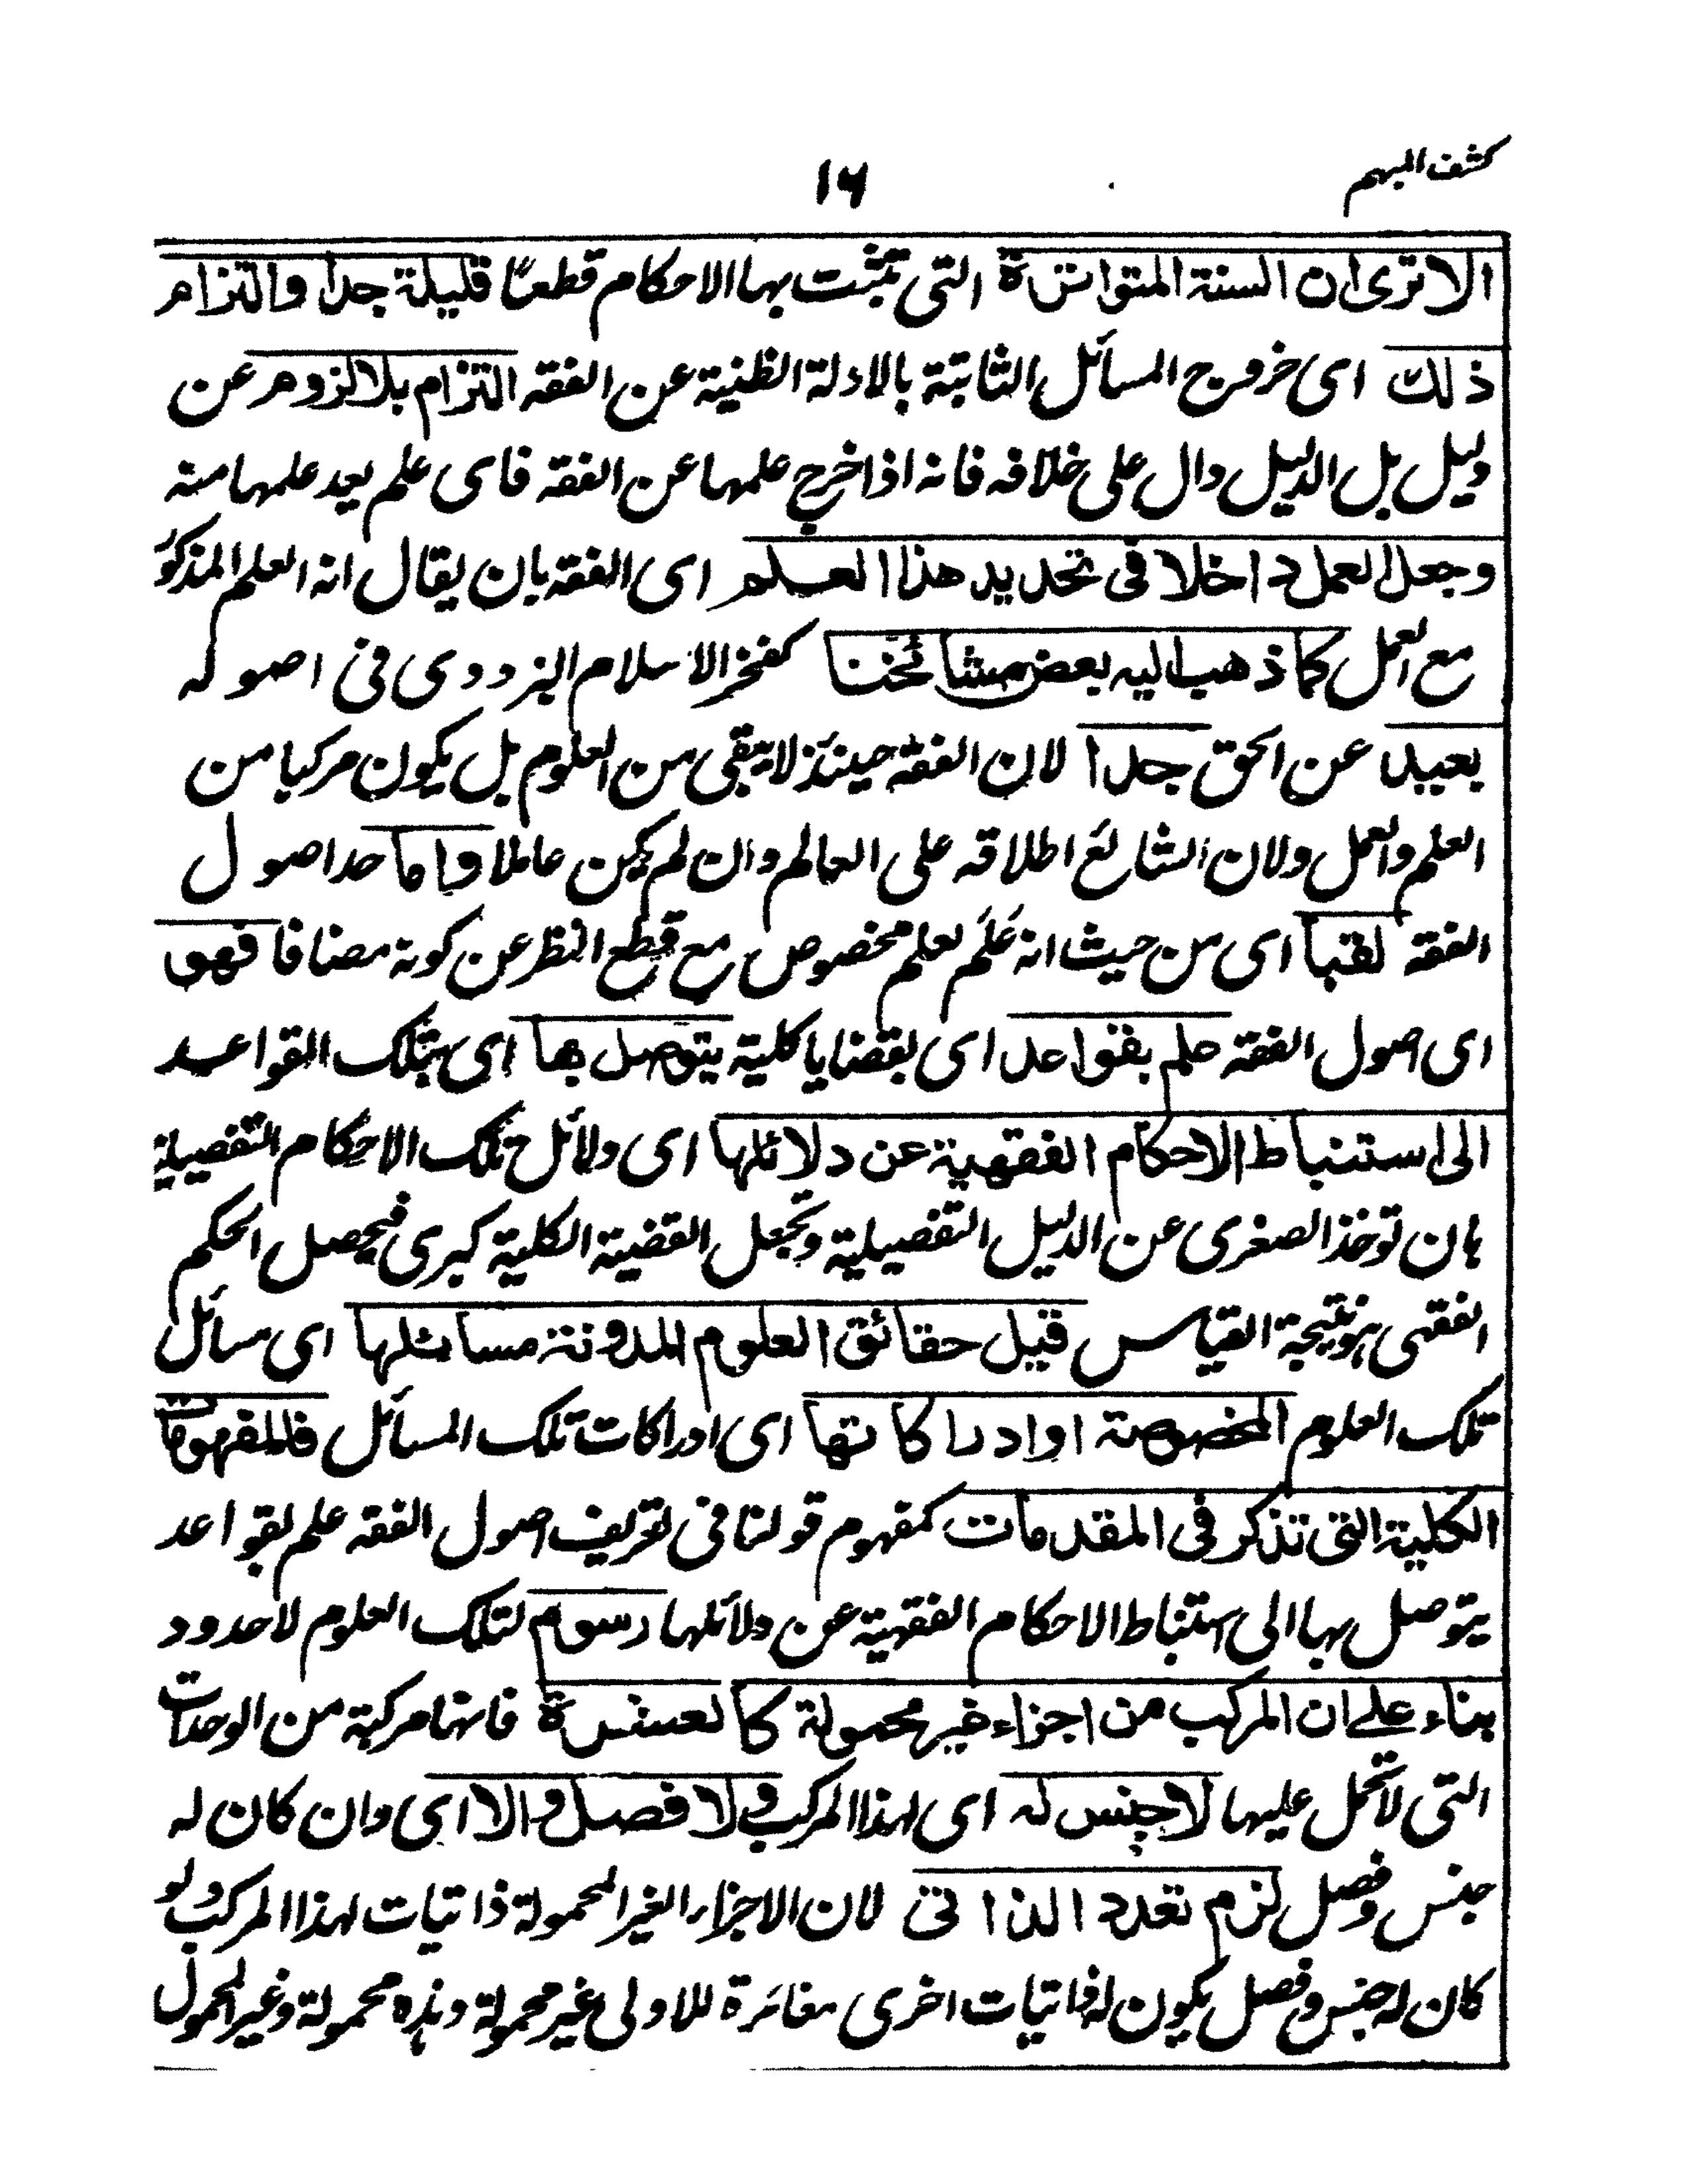 كشف المبهم
١٦
الا ترى ان السنة المتواترة التى تثبت بها الاحكام قطعا قليلة جدا والتزام
ذلك اى خروج المسائل الثابتة بالادلة الظنية عن الفقه التزام بلا لزوم عن
دليل بل الدليل دال على خلافه فانه اذا خرج علمها عن الفقه فاى علم يعد علمها منه
وجعل العمل داخلا فى تحديد هذا العلم اى الفقه بان يقال انه العلم المذكور
مع العمل كما ذهب اليه بعض مشائخنا كفخر الاسلام البزدوى فى اصوله
بعيدا عن الحق جدا لان الفقه حينئذ لا يبقى من العلوم بل يكون مركبا من
العلم والعمل ولان الشائع اطلاقه على العالم وان لم يكن عاملا واما حد اصول
الفقه لقبا اى من حيث انه عَلَم لعلم مخصوص مع قطع النظر عن كونه مضافا فهو
اى اصول الفقه علم بقواعد اى بقضايا كلية يتوصل بها اى بتلك القواعد
الى استنباط الاحكام الفقهية عن دلائلها اى دلائل تلك الاحكام التفصيلية
بان توخذ الصغرى عن الدليل التفصيلية وتجعل القضية الكلية كبرى فيحصل الحكم
الفقهى هو نتيجة القياس قيل حقائق العلوم المدونة مسائلها اى مسائل
تلك العلوم المخصوصة او ادراكاتها اى ادراكات تلك المسائل فالمفهومات
الكلية التى تذكر فى المقدمات كمفهوم قولنا فى تعريف اصول الفقه علم بقواعد
يتوصل بها الى استنباط الاحكام الفقهية عن دلائلها رسوم لتلك العلوم لا حدود
بناء على ان المركب من اجزاء غير محمولة كالعشرة فانها مركبة من الوحدات
التى لا تحمل عليها لا جنس له اى لهذا المركب ولا فصل والا اى وان كان له
جنس وفصل لزم تعدد الذاتى لان الاجزاء الغير المحمولة ذاتيات لهذا المركب ولو
كان له جنس وفصل يكون له ذاتيات اخرى مغائرة للاولى غير محمولة وهذه محمولة وغير المحمول